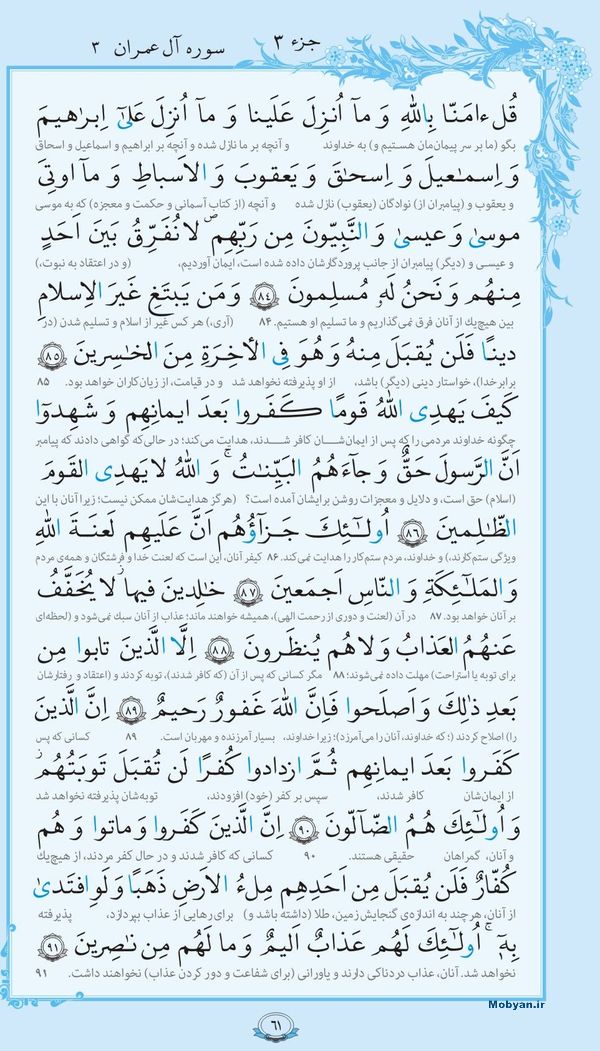 جزء ۳
سوره آل عمران ۳
قُل ءامَنّا بِاللّٰهِ وَ مآ اُنزِلَ عَلَينا وَ مآ اُنزِلَ عَلىٰٓ اِبرٰهيمَ
بگو (ما بر سر پیمان‌مان هستیم و) به خداوند و آنچه بر ما نازل شده و آنچه بر ابراهیم و اسماعیل و اسحاق
وَ اِسمٰعيلَ وَ اِسحٰقَ وَ يَعقوبَ وَ الاَسباطِ وَ مآ اوتِىَ
و یعقوب و (پیامبران از) نوادگان (یعقوب) نازل شده و آنچه (از کتاب آسمانی و حکمت و معجزه) که به موسی
موسىٰ وَ عيسىٰ وَ النَّبِيّونَ مِن رَبِّهِم ۖ لا نُفَرِّقُ بَينَ اَحَدٍ
و عیسی و (دیگر) پیامبران از جانب پروردگارشان داده شده است، ایمان آوردیم، (و در اعتقاد به نبوت،)
مِنهُم وَ نَحنُ لَهٗ مُسلِمونَ ﴿۸۴﴾ وَ مَن يَبتَغِ غَيرَ الاِسلامِ
بین هیچ‌یک از آنان فرق نمی‌گذاریم و ما تسلیم او هستیم. ۸۴ (آری،) هر کس غیر از اسلام و تسلیم شدن (در
دينًا فَلَن يُقبَلَ مِنهُ وَ هُوَ فِى الأخِرَةِ مِنَ الخٰسِرينَ ﴿۸۵﴾
برابر خدا)، خواستار دینی (دیگر) باشد، از او پذیرفته نخواهد شد و در قیامت، از زیان‌کاران خواهد بود. ۸۵
كَيفَ يَهدِى اللّٰهُ قَومًا كَفَروا بَعدَ ايمانِهِم وَ شَهِدوٓا
چگونه خداوند مردمی را که پس از ایمان‌شان کافر شدند، هدایت می‌کند؛ در حالی‌که گواهی دادند که پیامبر
اَنَّ الرَّسولَ حَقٌّ وَ جآءَهُمُ البَيِّنٰتُ ۚ وَ اللّٰهُ لا يَهدِى القَومَ
(اسلام) حق است، و دلایل و معجزات روشن برایشان آمده است؟ (هرگز هدایت‌شان ممکن نیست؛ زیرا آنان با این
الظّٰلِمينَ ﴿۸۶﴾ اُولٰٓئِكَ جَزآؤُهُم اَنَّ عَلَيهِم لَعنَةَ اللّٰهِ
ویژگی ستم‌کارند،) و خداوند، مردم ستم‌کار را هدایت نمی‌کند. ۸۶ کیفر آنان، این است که لعنت خدا و فرشتگان و همه‌ی مردم
وَ المَلٰٓئِكَةِ وَ النّاسِ اَجمَعينَ ﴿۸۷﴾ خٰلِدينَ فيها لا يُخَفَّفُ
بر آنان خواهد بود. ۸۷ در آن (لعنت و دوری از رحمت الهی)، همیشه خواهند ماند؛ عذاب از آنان سبک نمی‌شود و (لحظه‌ای
عَنهُمُ العَذابُ وَ لا هُم يُنظَرونَ ﴿۸۸﴾ اِلَّا الَّذينَ تابوا مِن
برای توبه یا استراحت) مهلت داده نمی‌شوند؛ ۸۸ مگر کسانی که پس از آن (که کافر شدند)، توبه کردند و (اعتقاد و رفتارشان
بَعدِ ذٰلِكَ وَ اَصلَحوا فَاِنَّ اللّٰهَ غَفورٌ رَحيمٌ ﴿۸۹﴾ اِنَّ الَّذينَ
را) اصلاح کردند (؛ که خداوند، آنان را می‌آمرزد)؛ زیرا خداوند، بسیار آمرزنده و مهربان است. ۸۹ کسانی که پس
كَفَروا بَعدَ ايمانِهِم ثُمَّ ازدادوا كُفرًا لَن تُقبَلَ تَوبَتُهُم
از ایمان‌شان کافر شدند، سپس بر کفر (خود) افزودند، توبه‌شان پذیرفته نخواهد شد
وَ اُولٰٓئِكَ هُمُ الضّآلّونَ ﴿۹۰﴾ اِنَّ الَّذينَ كَفَروا وَ ماتوا وَ هُم
و آنان، گمراهان حقیقی هستند. ۹۰ کسانی که کافر شدند و در حال کفر مردند، از هیچ‌یک
كُفّارٌ فَلَن يُقبَلَ مِن اَحَدِهِم مِلءُ الاَرضِ ذَهَبًا وَ لَوِ افتَدىٰ
از آنان، هرچند به اندازه‌ی گنجایش زمین، طلا (داشته باشد و) برای رهایی از عذاب بپردازد، پذیرفته
بِهٖٓ ۗ اُولٰٓئِكَ لَهُم عَذابٌ اَليمٌ وَ ما لَهُم مِن نٰصِرينَ ﴿۹۱﴾
نخواهد شد. آنان، عذاب دردناکی دارند و یاورانی (برای شفاعت و دور کردن عذاب) نخواهند داشت. ۹۱
۶۱
Mobyan.ir